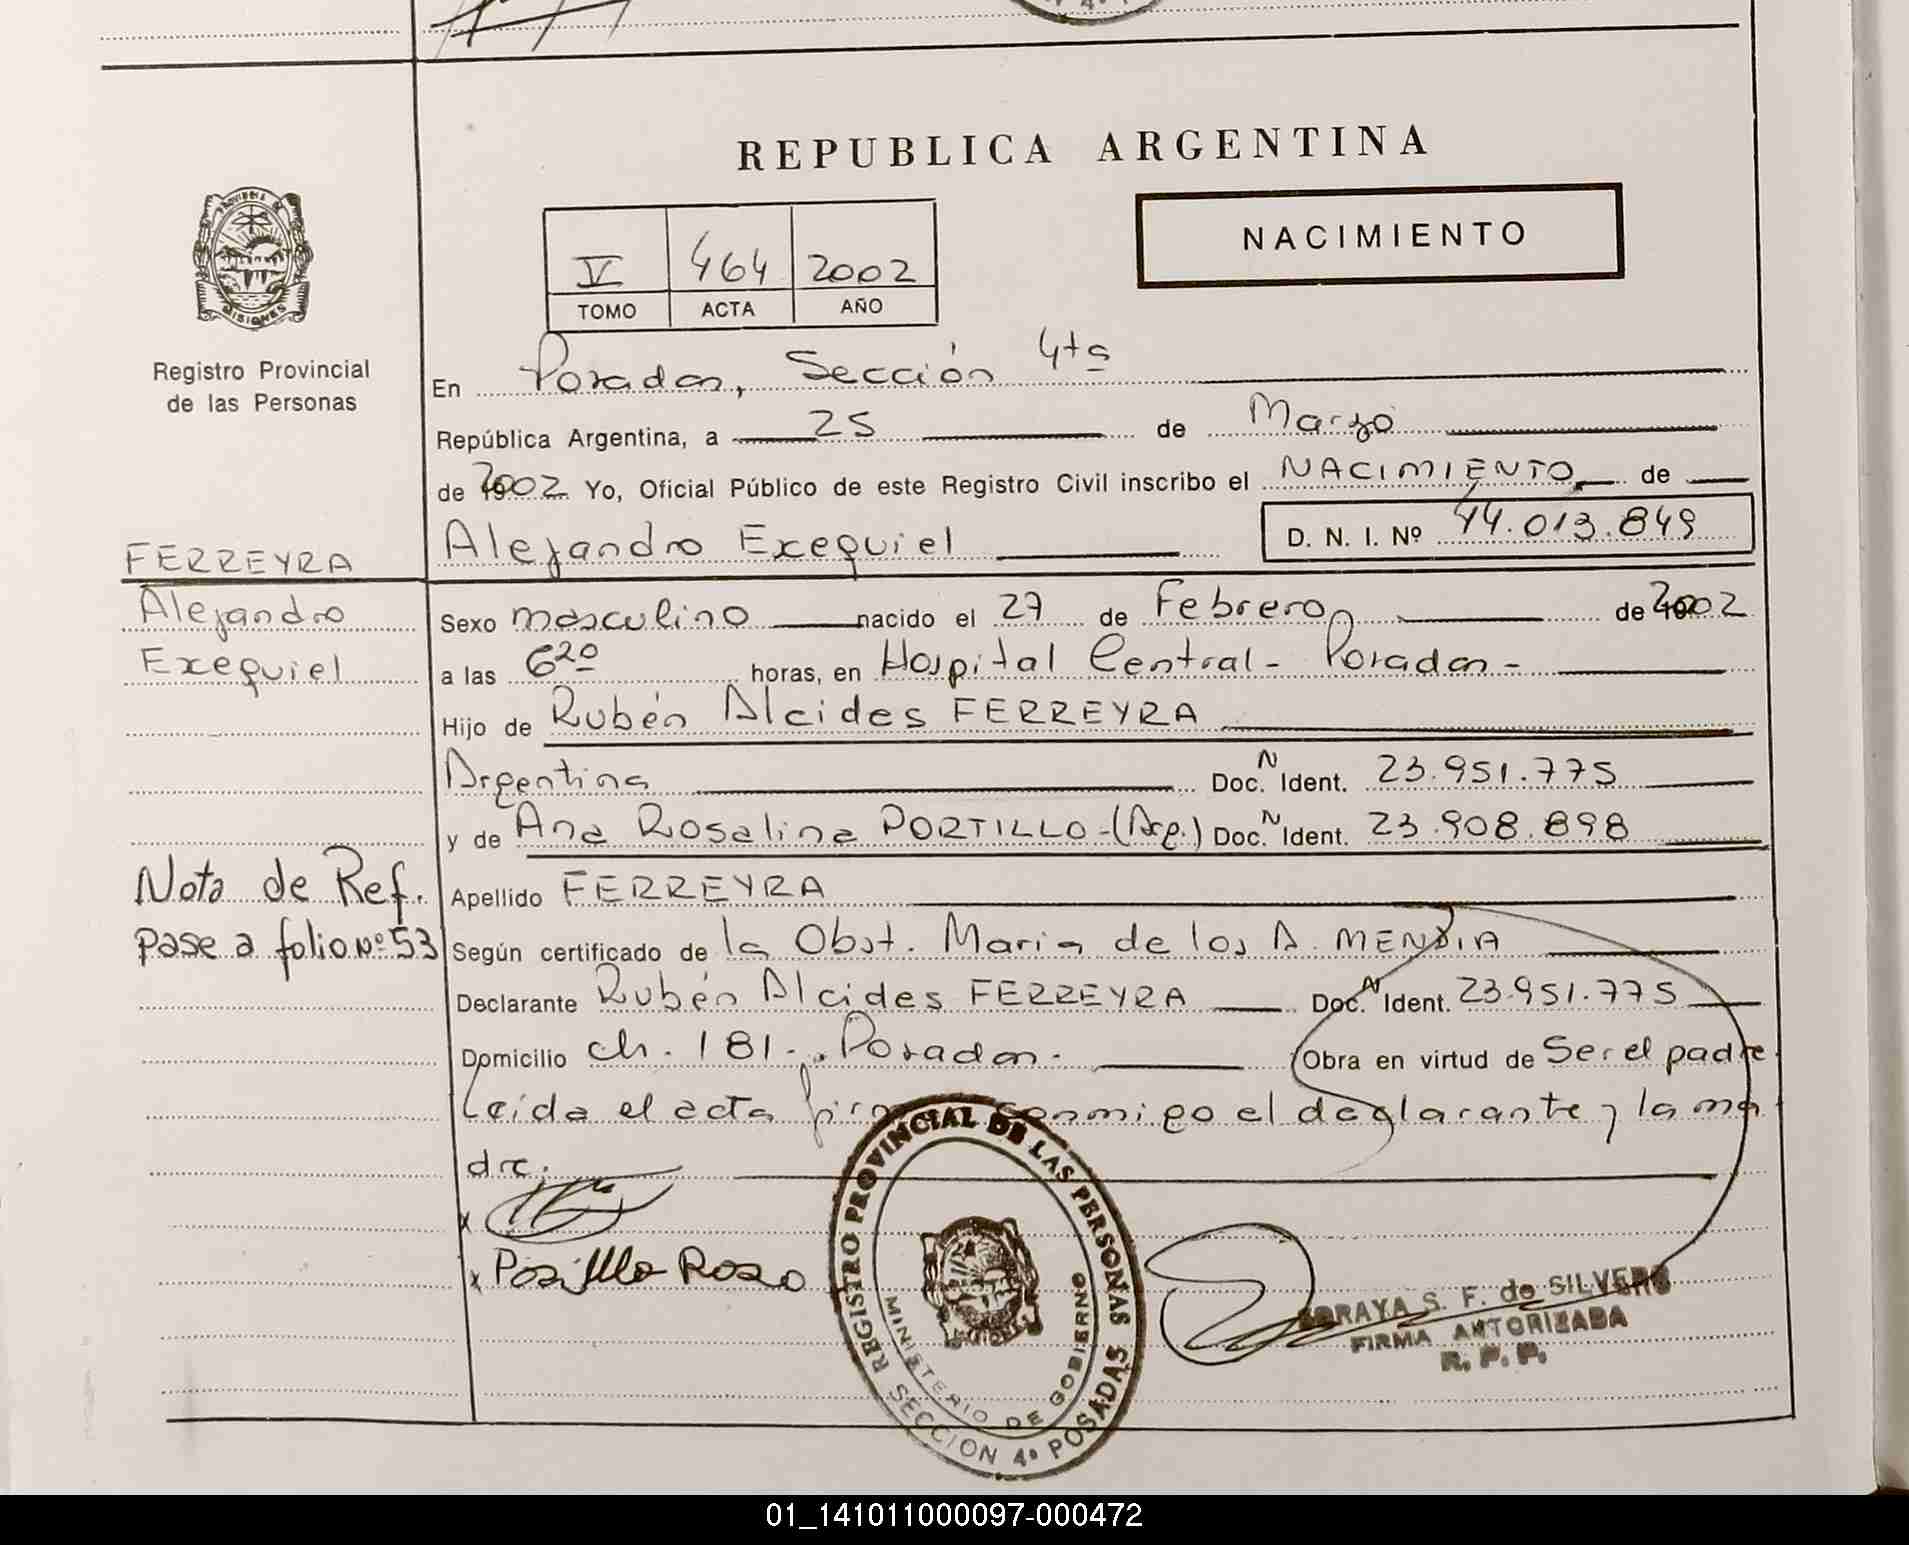 REPUBLICA ARGENTINA
NACIMIENTO
V 464 2002
TOMO ACTA AÑO
Registro Provincial
de las Personas
En Posadas, Sección 4ta
República Argentina, a 25 de Marzo
de 2002 Yo, Oficial Público de este Registro Civil inscribo el NACIMIENTO de
Alejandro Exequiel D. N. I. Nº 44.013.849
FERREYRA
Alejandro
Exequiel
Sexo masculino nacido el 27 de Febrero de 2002
a las 6 20 horas, en Hospital Central - Posadas -
Hijo de Rubén Alcides FERREYRA
Argentina Doc. N Ident. 23.951.775
y de Ana Rosalina PORTILLO - (Arg.) Doc. N Ident. 23.908.898
Nota de Ref.
pase a folio Nº 53
Apellido FERREYRA
Según certificado de la Obst. Maria de los A. MENDIA
Declarante Rubén Alcides FERREYRA Doc. N Ident. 23.951.775
Domicilio ch. 181 - Posadas - Obra en virtud de Ser el padre.
Leída el acta conmigo el declarante y la ma
dre.
x
x Portillo Rosa
REGISTRO PROVINCIAL DE LAS PERSONAS
MINISTERIO DE GOBIERNO
SECCION 4ª POSADAS
SORAYA S. F. de SILVERO
FIRMA AUTORIZADA
R. P. P.
01_141011000097-000472